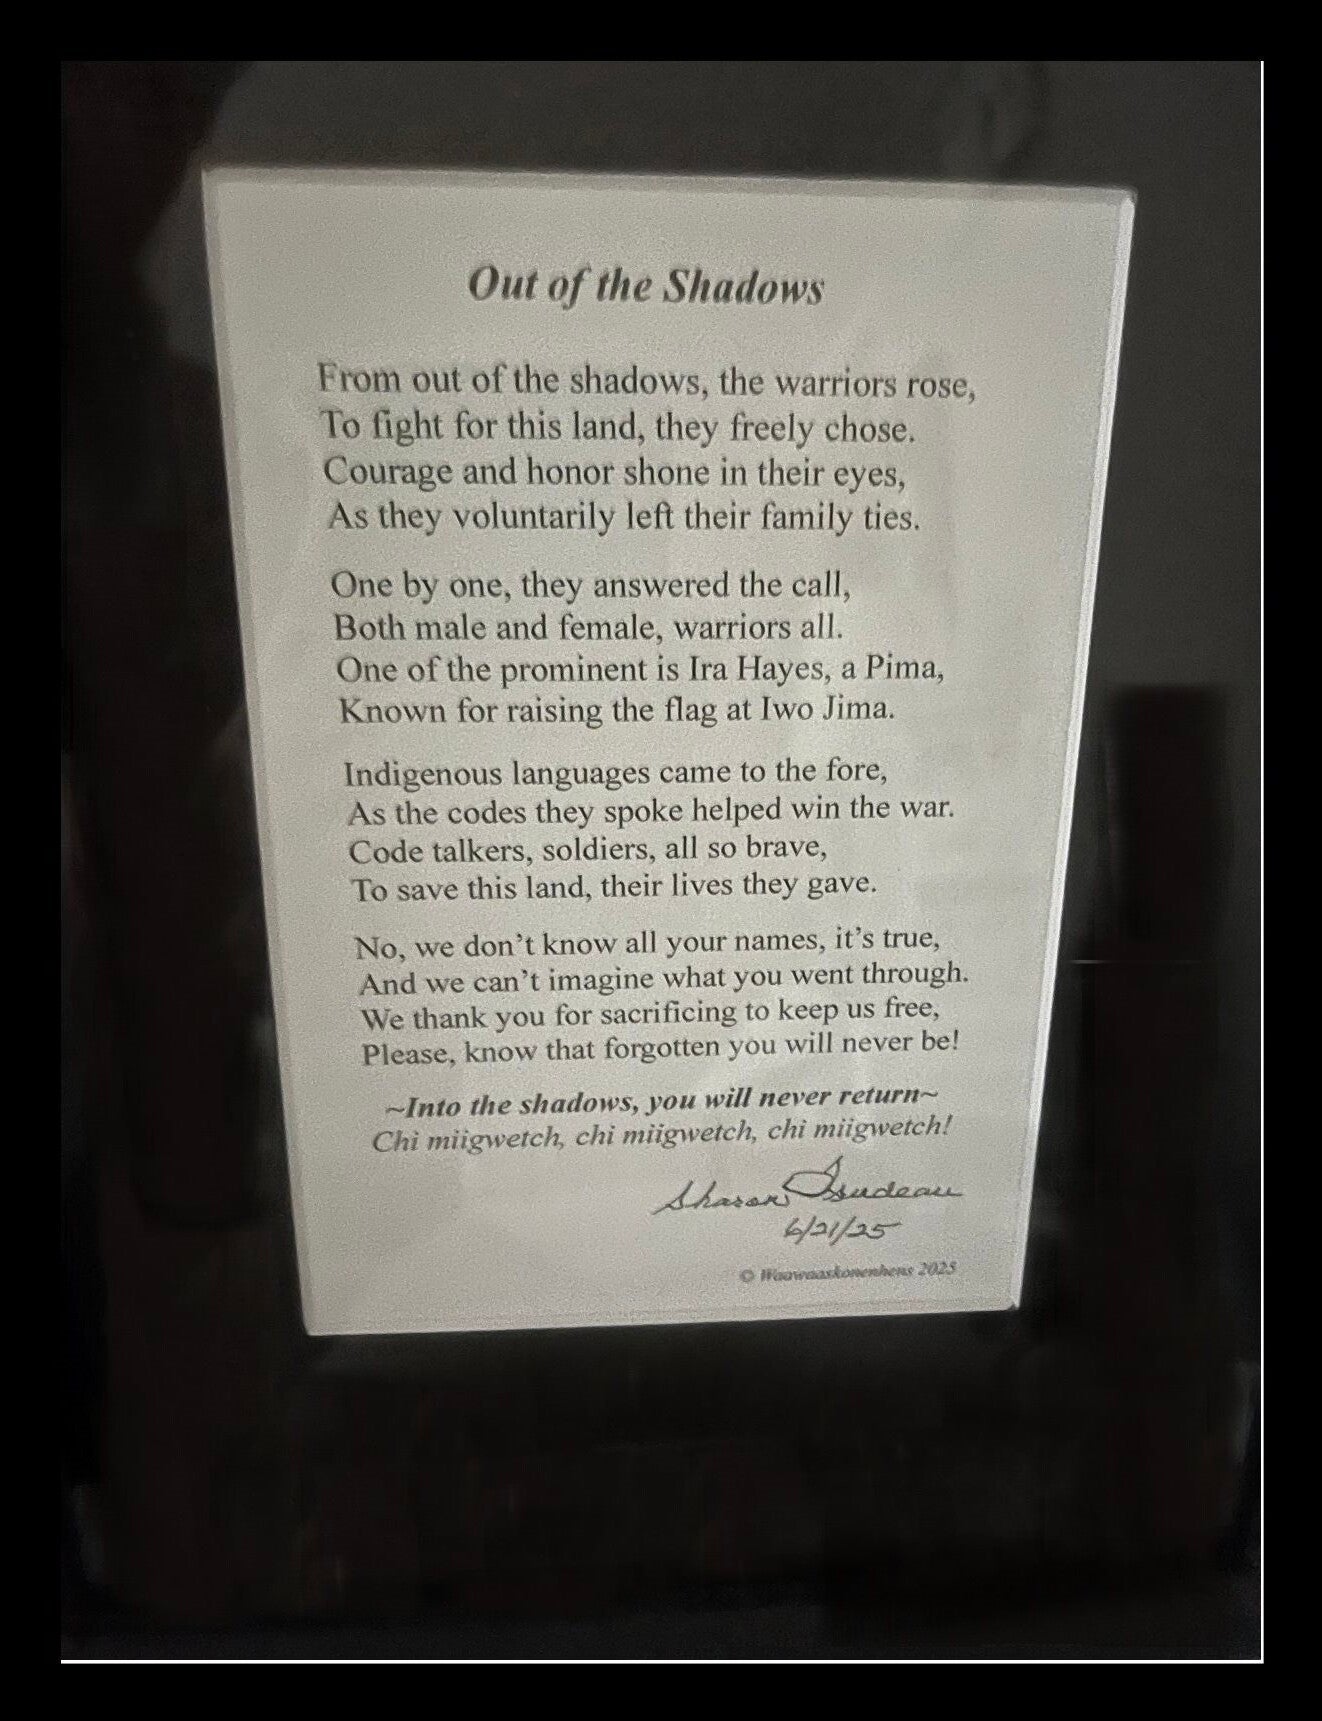 Out of the Shadows
From out of the shadows, the warriors rose,
To fight for this land, they freely chose.
Courage and honor shone in their eyes,
As they voluntarily left their family ties.
One by one, they answered the call,
Both male and female, warriors all.
One of the prominent is Ira Hayes, a Pima,
Known for raising the flag at Iwo Jima.
Indigenous languages came to the fore,
As the codes they spoke helped win the war.
Code talkers, soldiers, all so brave,
To save this land, their lives they gave.
No, we don’t know all your names, it’s true,
And we can’t imagine what you went through.
We thank you for sacrificing to keep us free,
Please, know that forgotten you will never be!
~Into the shadows, you will never return~
Chi miigwetch, chi miigwetch, chi miigwetch!
Sharon Trudeau
6/21/25
© Waawaaskonenhens 2025